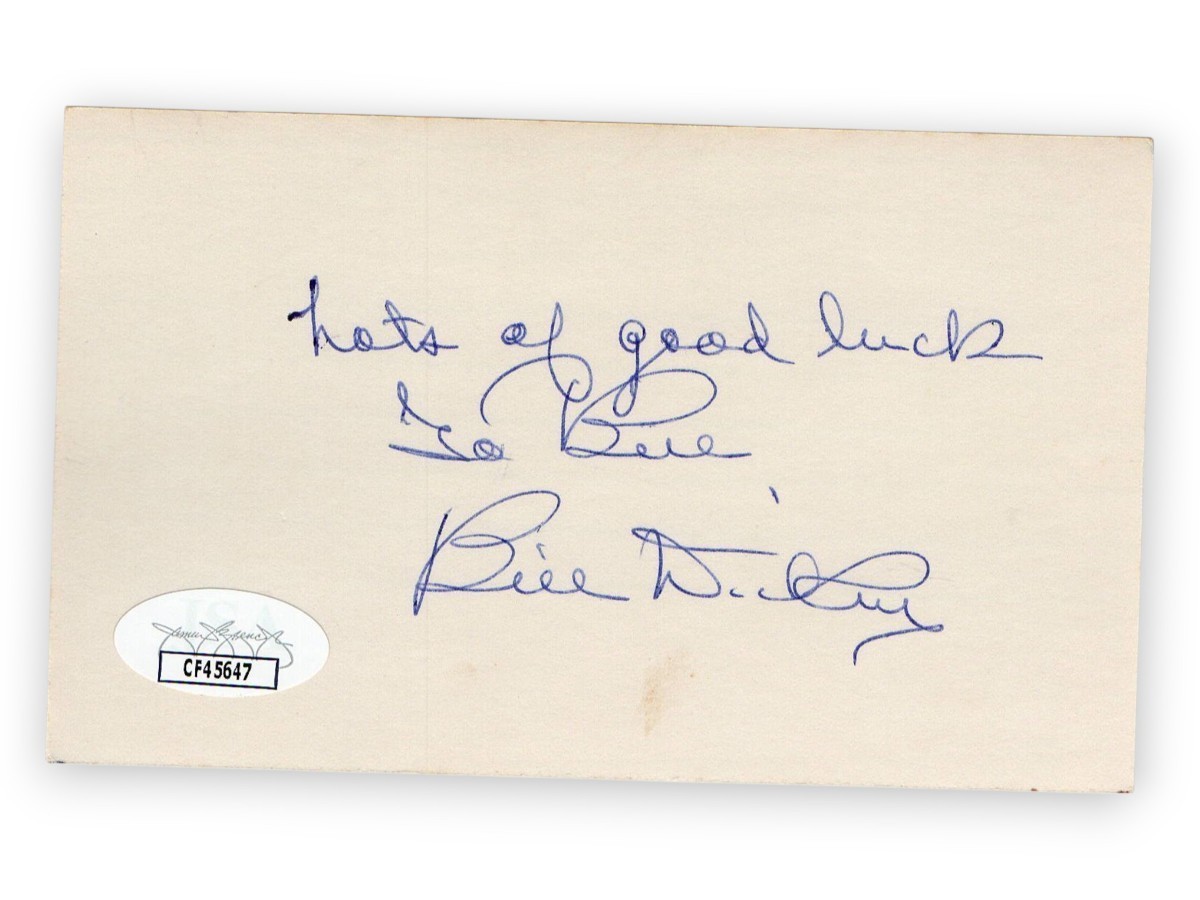 Lots of good luck
To Bill
Bill Dickey
James Spence
CF45647